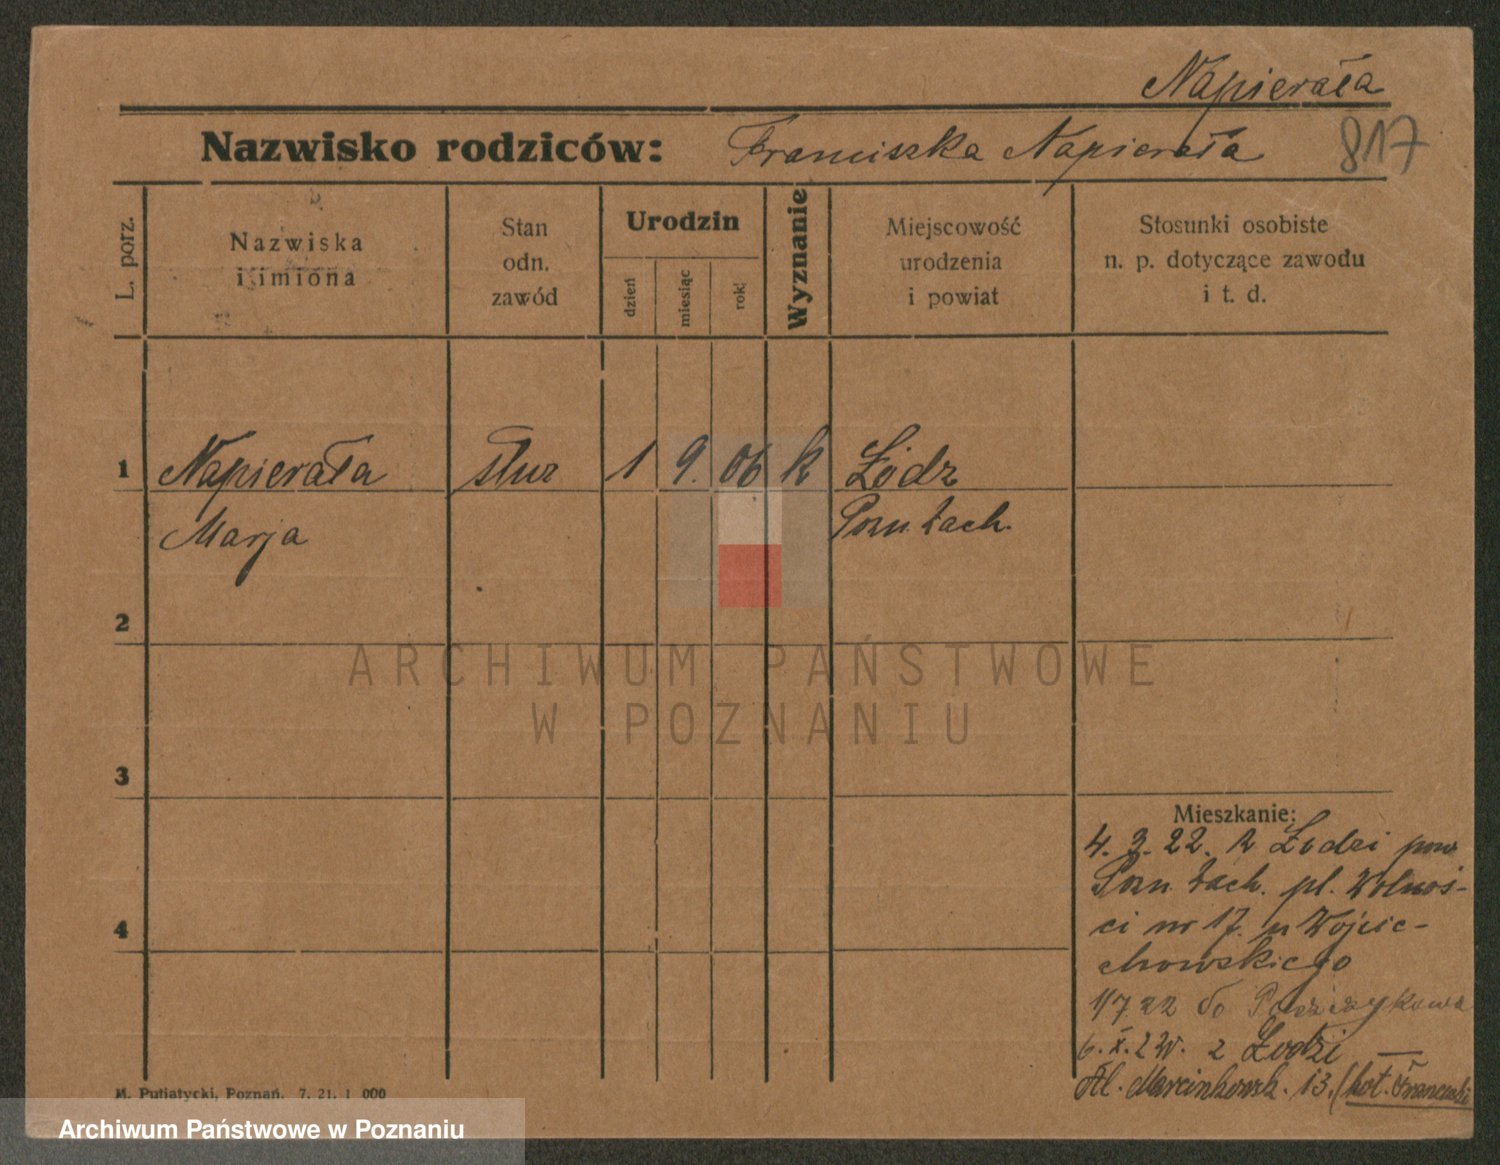 Napierała
Nazwisko rodziców: Franciszka Napierała
817
L. porz.
Nazwiska
i imiona
Stan
odn.
zawód
Urodzin
dzień
miesiąc
rok
Wyznanie
Miejscowość
urodzenia
i powiat
Stosunki osobiste
n. p. dotyczące zawodu
i t. d.
1 Napierała służ 1 9. 06 k Łódz
Marja Pozn. zach.
2
3
4
Mieszkanie:
4. 3. 22. z Łodzi pow
Pozn. zach. pl. Wolnoś-
ci nr 17. u Wojcie-
chowskiego
1/7 22 do
6. X. 2 z Łodzi —
Al. Marcinkowsk. 13. (hot. Francuski
M. Putiatycki, Poznań. 7. 21. 1 000
ARCHIWUM PAŃSTWOWE
W POZNANIU
Archiwum Państwowe w Poznaniu